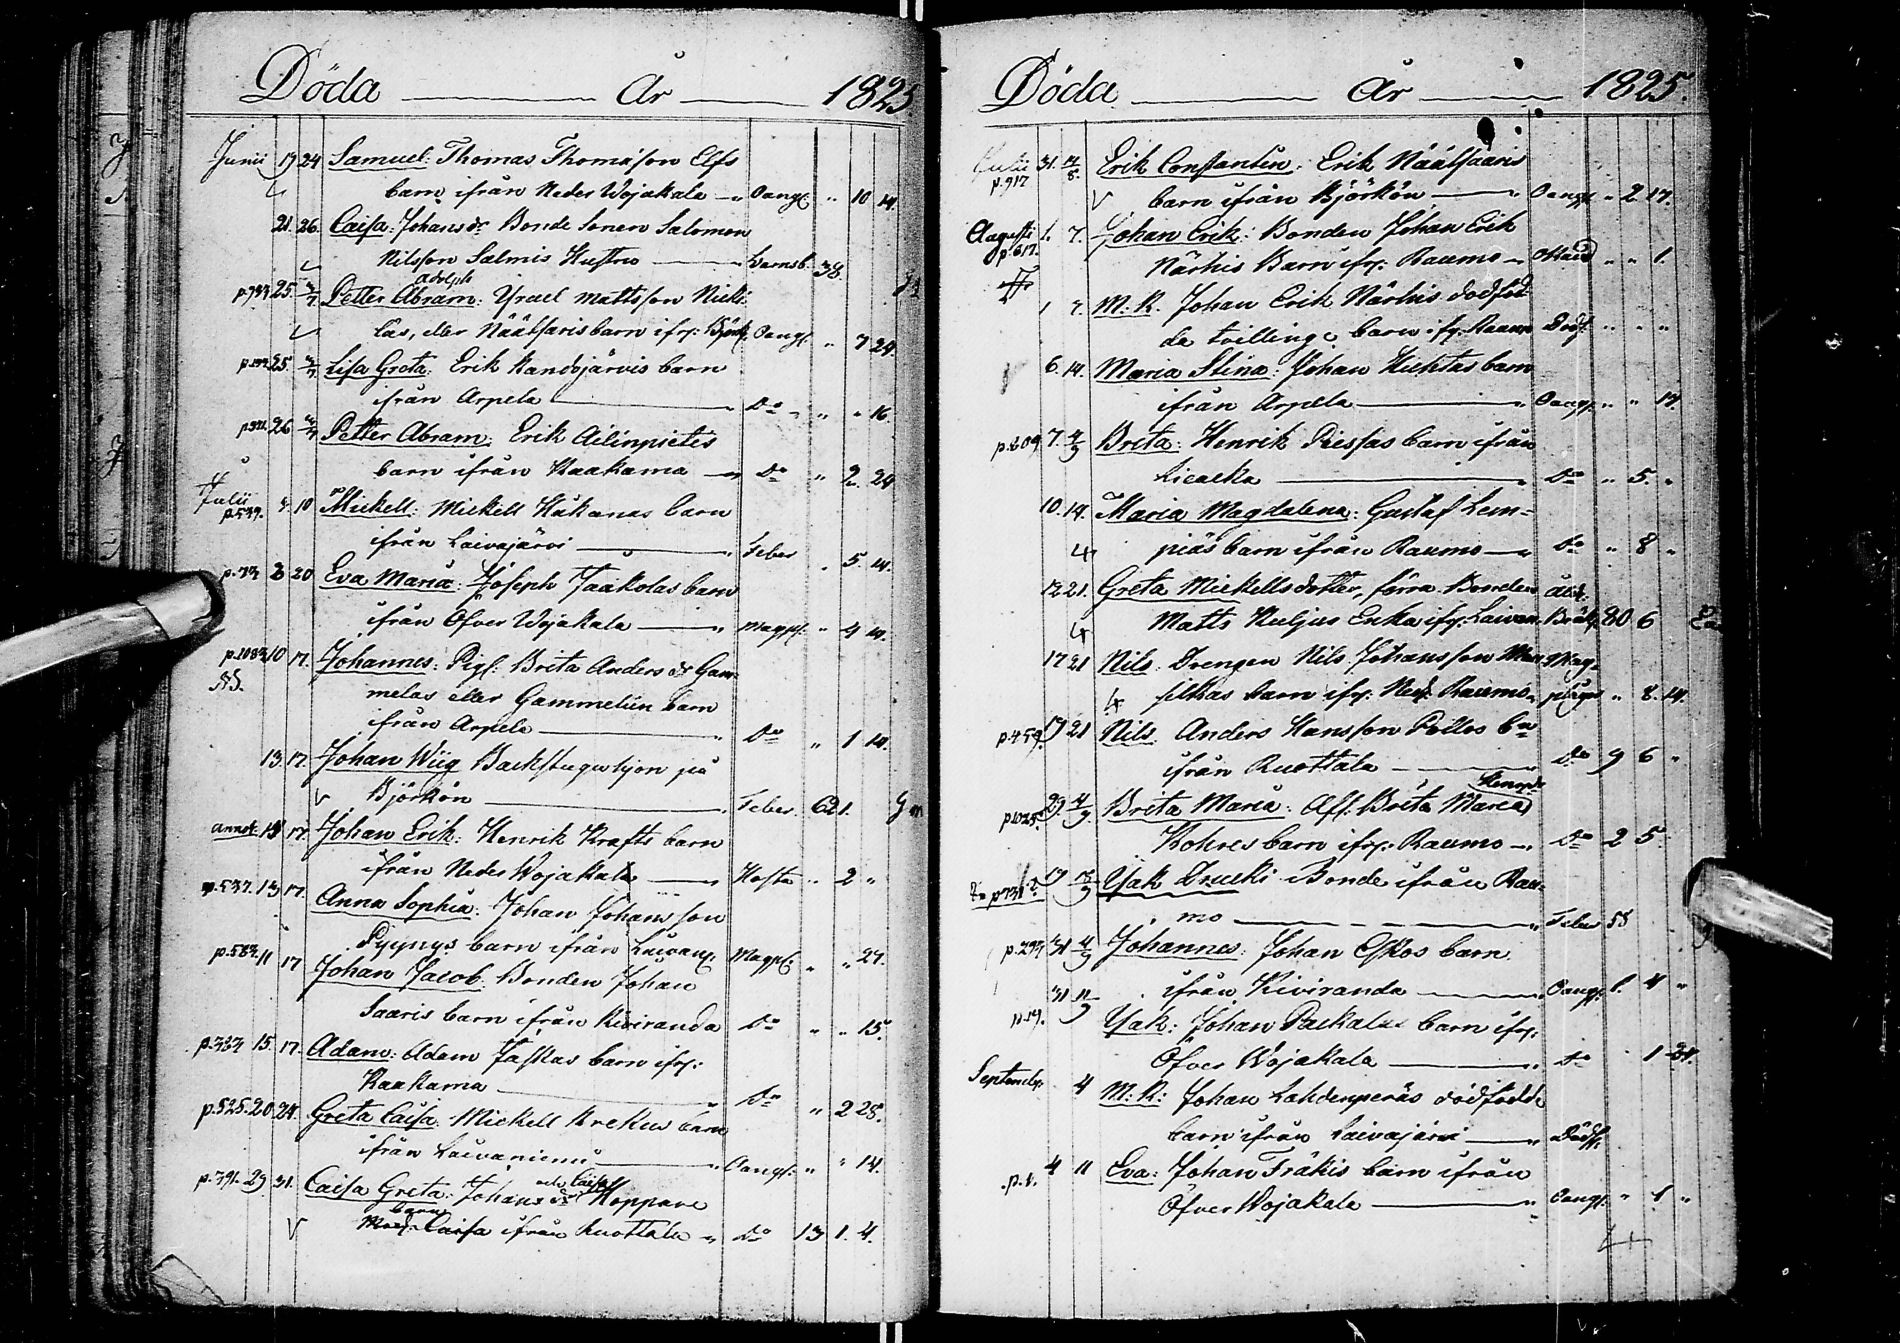 Döda År 1825.
Junii 19 24 Samuel: Thomas Thomasson Elfs
barn ifrån Neder Wojakala Oangf. " 10 14.
21. 26. Caisa: Johansdr Bonde Sonen Salomon
Nilsson Salmis Hustru Barnsb. 38.
Adolph
25. 3/7 Petter Abram: Israel Mattsson Nicki
las, eller Näätsaris barn ifr: Björk. Oangf. " 7 24.
25 3/7 Lisa Greta: Erik Kandojärvis barn
ifrån Arpela Do " " 16.
26 3/7 Petter Abram: Erik Ailinpietis
barn ifrån Kaakama Do " 2. 24
Julii
p.539. 10 Mickell: Mickell Hakanas barn
ifrån Laivajärvi Feber " 5 14.
20 Eva Maria: Joseph Jaakolas barn
ifrån Öfver Wojakala Magpl. " 4 14.
10 17. Johannes: Pig. Brita Anders dr Gam-
melas eller Gammelin barn
ifrån Arpela Do " 1 14.
13. 17. Johan Wiig Backstuguhjon på
Björkön Feber. 62 1.
17. Johan Erik: Henrik Krafts barn
ifrån Neder Wojakala Hosta " 2 "
p.537. 13 17. Anna Sophia: Johan Johansson
Pyynys barn ifrån Laivanj. Magpl. " " 27.
p.583. 11 17 Johan Jacob. Bonden Johan
Saaris barn ifrån Kiviranda Do " " 15.
15. 17. Adam: Adam Taskas barn ifr:
Kaakama Do " 2 28.
p.525. 20. 24. Greta Caisa. Mickell Krekus barn
ifrån Laivaniemi Oangf. " " 14.
p.791. 29 31. Caisa Greta: Johans dr Hoppare
barn
Caisa ifrån Ruottala Do 13 1. 4.
Döda År 1825.
Julii 31. 4/8. Erik Constantin: Erik Näätsaaris
p.917
barn ifrån Björkön Oangf. " 2 17.
Augusti 1. 7. Johan Erik: Bonden Johan Erik
p.617.
Närhis Barn ifr: Raumo " " 1.
1 7. M: K. Johan Erik Närhis dödföd
da tvilling barn ifr. Raumo Dödf. " " "
6. 14. Maria Stina: Johan Huhtas barn
ifrån Arpela Oangf. " " 17.
p.809 7. 4/9 Brita: Henrik Piessas barn ifrån
Liealka Do " 5. "
10. 14. Maria Magdalena: Gustaf Lem=
piäs barn ifrån Raumo Do " 8 "
12 21. Greta Mickellsdotter, förra Bonden
Matts Kuljus Enka ifr. Laivan. 80 6
17 21 Nils: Drengen Nils Johansson
barn ifr: Ned. Raumo " 8. 14.
p.459. 19 21 Nils. Anders Hansson Pollos bn
ifrån Ruottala Do 9 6 "
p.1025. 29. 4/9 Brita Maria: Aff. Brita Maria
Kohres barn ifr: Raumo Do 2 5.
Isak Drucki Bonde ifrån Rau-
mo Feber 58
31 4/9 Johannes: Johan Eskos barn
ifrån Kiviranda Oangf. 1. 4 "
p.19. 31 11/9 Isak: Johan Packalas barn ifr:
Öfver Wojakala Do " 1 24.
Septembr. 4 M: K: Johan Lahdenperäs dödfödde
barn ifrån Laivajärvi Dödf.
p.1. 4 11 Eva: Johan Träkis barn ifrån
Öfver Wojakala Oangf. " 1 "